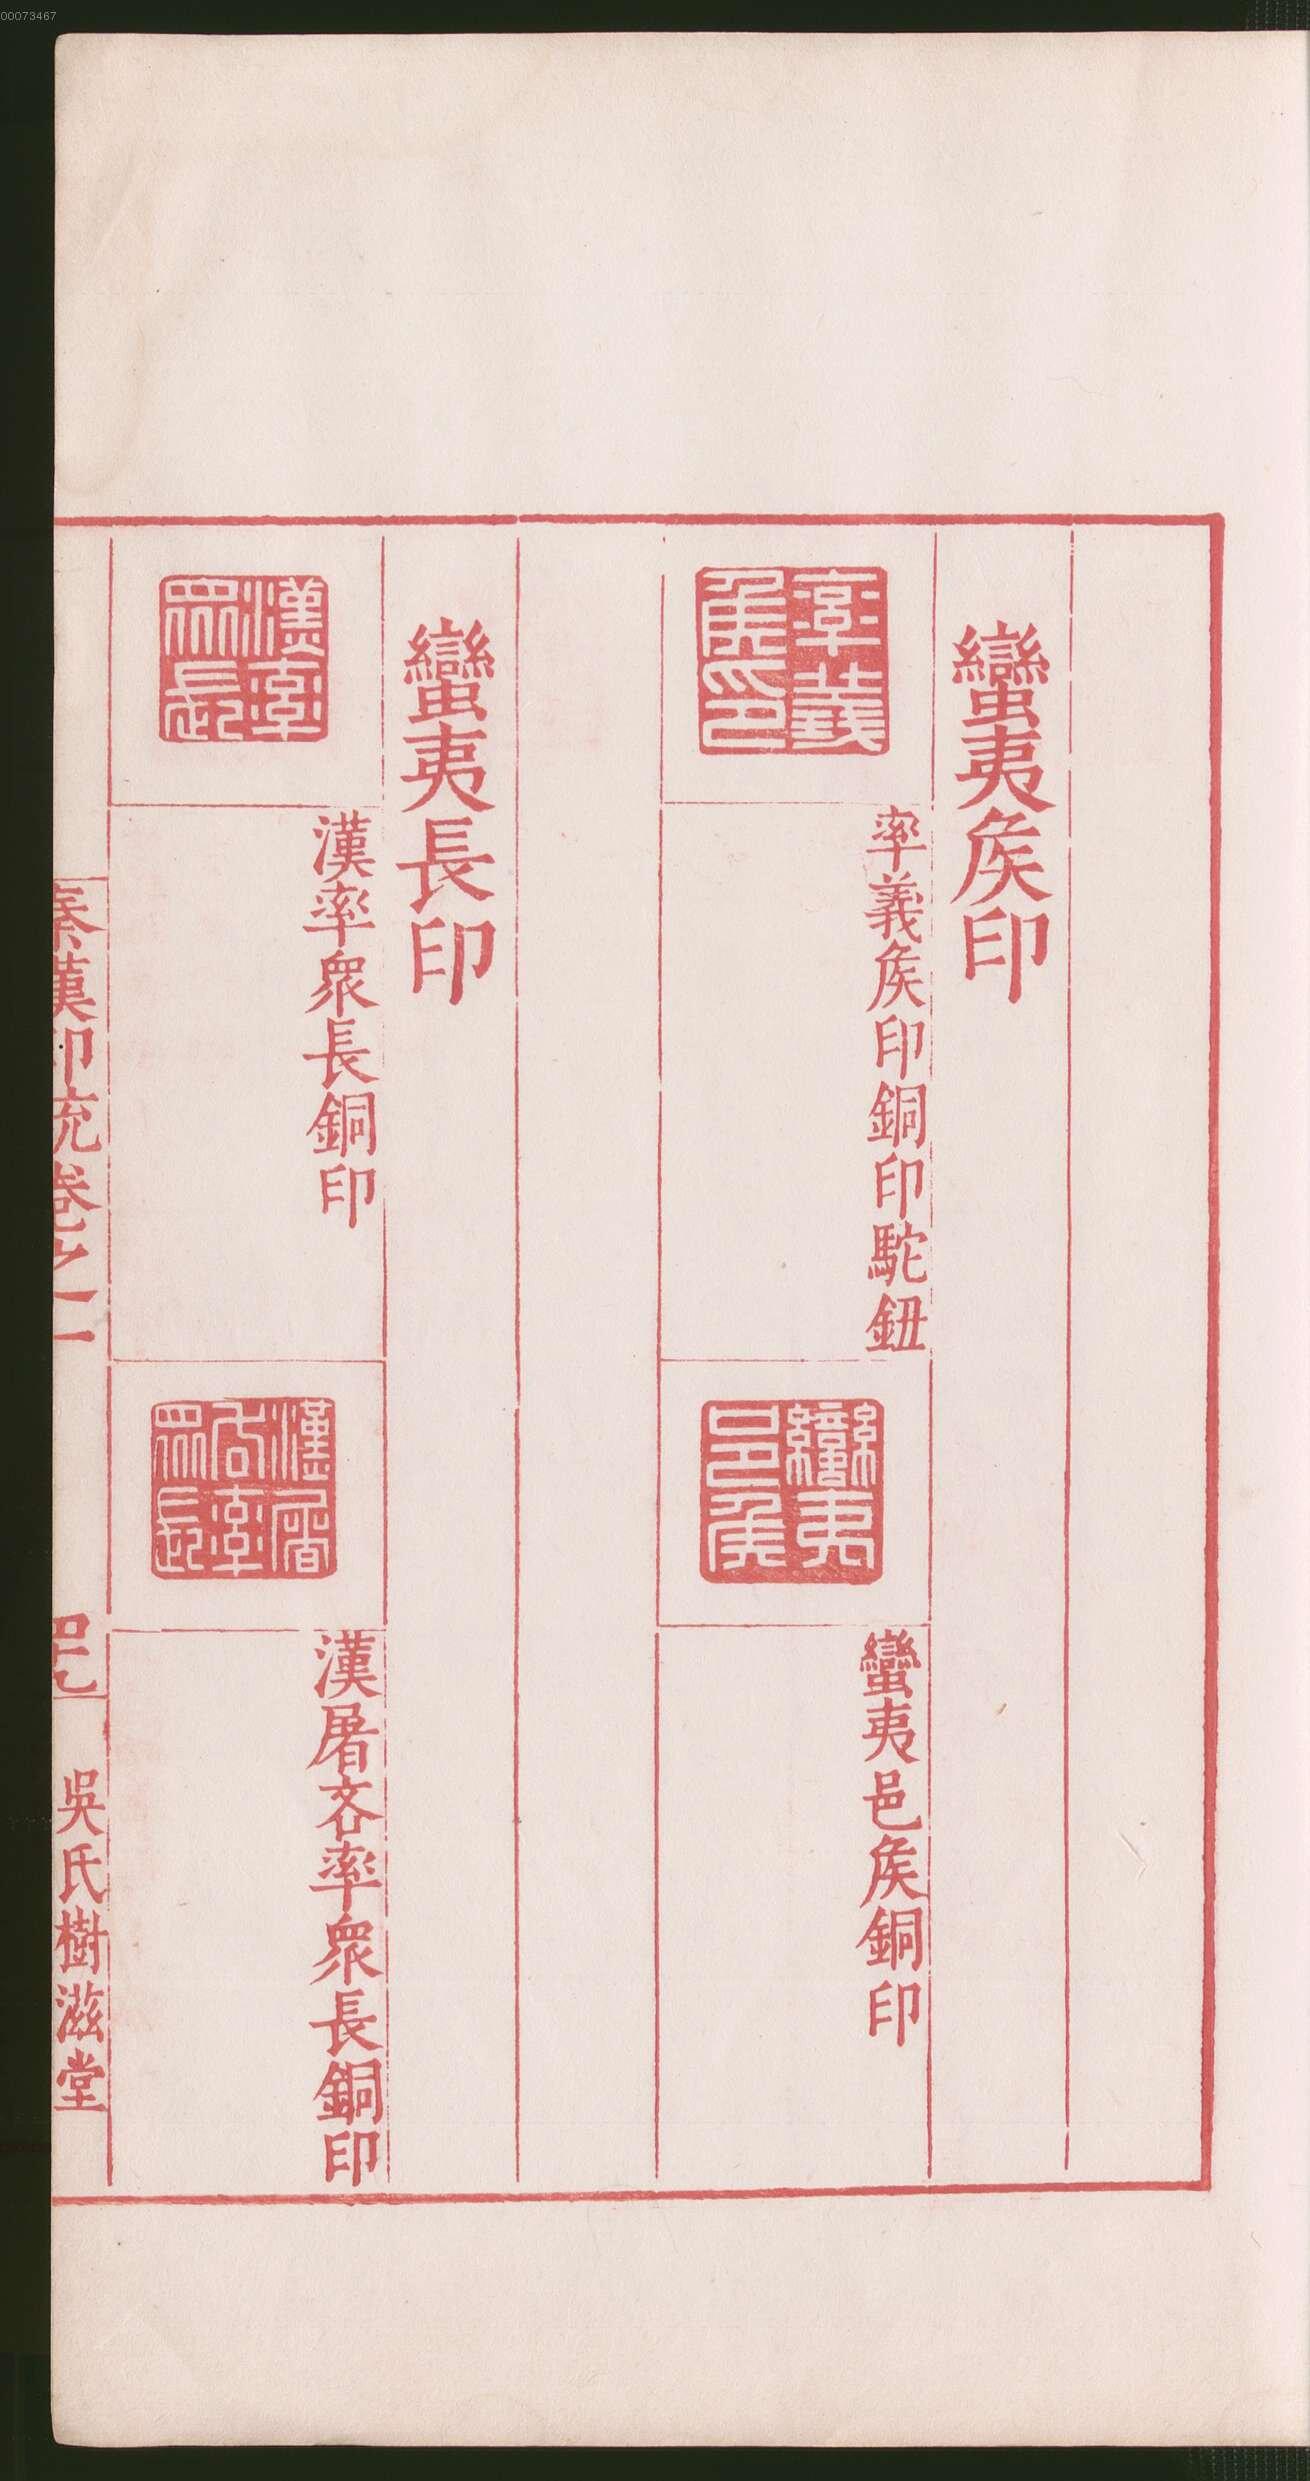 00073467
蠻夷矦印
率義矦印
率義矦印銅印駝鈕
蠻夷邑矦
蠻夷邑矦銅印
蠻夷長印
漢率衆長
漢率衆長銅印
漢屠各率衆長
漢屠㕦率衆長銅印
秦漢印統卷之二
吳氏樹滋堂